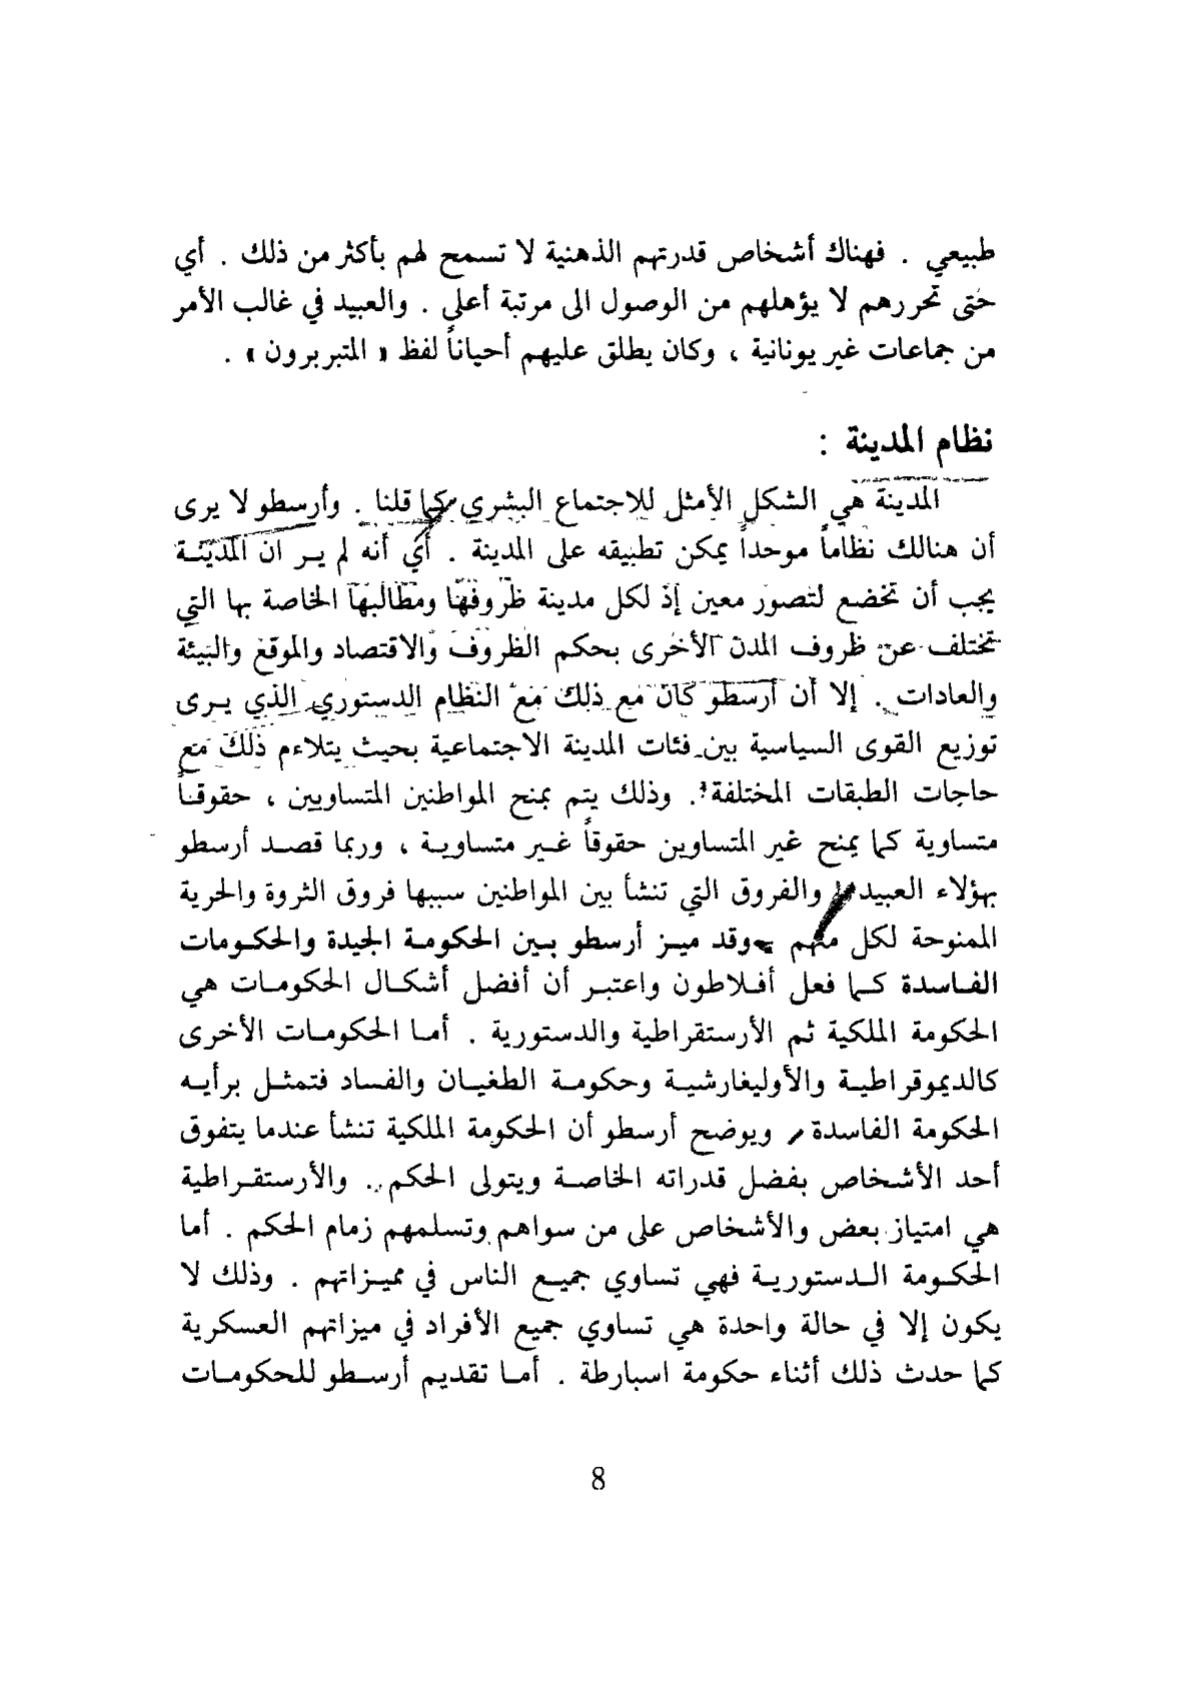 طبيعي . فهناك أشخاص قدرتهم الذهنية لا تسمح لهم بأكثر من ذلك . أي
حتى تحررهم لا يؤهلهم من الوصول الى مرتبة أعلى . والعبيد في غالب الأمر
من جماعات غير يونانية ، وكان يطلق عليهم أحياناً لفظ « المتبربرون » .
نظام المدينة :
المدينة هي الشكل الأمثل للاجتماع البشري كما قلنا . وأرسطو لا يرى
أن هنالك نظاماً موحداً يمكن تطبيقه على المدينة . أي أنه لم يـر ان المدينـة
يجب أن تخضع لتصور معين إذ لكل مدينة ظروفها ومطالبها الخاصة بها التي
تختلف عن ظروف المدن الأخرى بحكم الظروف والاقتصاد والموقع والبيئة
والعادات . إلا أن أرسطو كان مع ذلك مع النظام الدستوري الذي يـرى
توزيع القوى السياسية بين فئات المدينة الاجتماعية بحيث يتلاءم ذلك مع
حاجات الطبقات المختلفة . وذلك يتم بمنح المواطنين المتساويين ، حقوقـاً
متساوية كما يمنح غير المتساوين حقوقاً غـير متساويـة ، وربما قصـد أرسطو
بهؤلاء العبيد والفروق التي تنشأ بين المواطنين سببها فروق الثروة والحرية
الممنوحة لكل منهم وقد ميـز أرسطو بـين الحكومـة الجيدة والحكـومات
الفـاسدة كـما فعل أفـلاطون واعتبـر أن أفضل أشكـال الحكومـات هي
الحكومة الملكية ثم الأرستقراطية والدستورية . أمـا الحكومـات الأخرى
كالديموقراطيـة والأوليغارشيـة وحكومـة الطغيـان والفساد فتمثـل برأيـه
الحكومة الفاسدة ، ويوضح أرسطو أن الحكومة الملكية تنشأ عندما يتفوق
أحد الأشخاص بفضل قدراته الخاصـة ويتولى الحكم .. والأرستقـراطية
هي امتياز بعض والأشخاص على من سواهم وتسلمهم زمام الحكم . أما
الحكـومة الـدستوريـة فهي تساوي جميـع الناس في مميـزاتهم . وذلك لا
يكون إلا في حالة واحدة هي تساوي جميع الأفراد في ميزاتهم العسكرية
كما حدث ذلك أثناء حكومة اسبارطة . أمـا تقديم أرسـطو للحكومـات
8